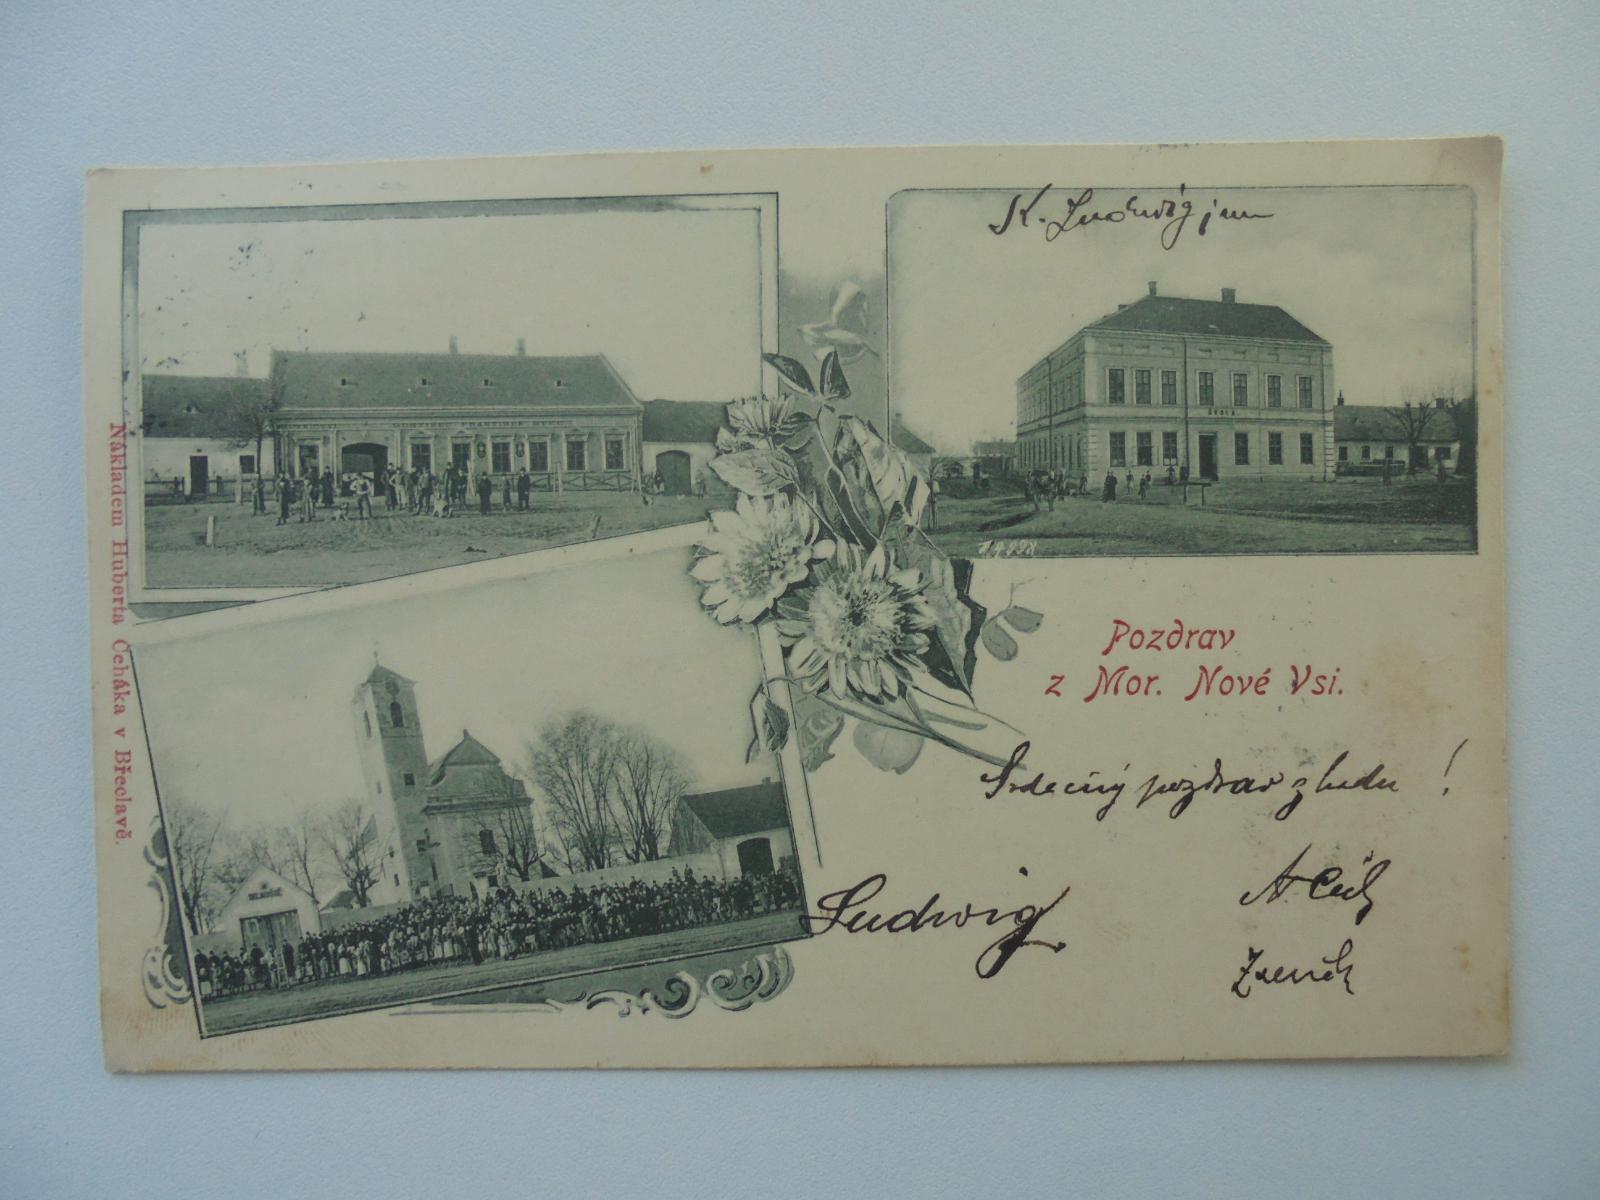 Nákladem Huberta Čeháka v Břeclavě.
K. Ludwig jun
ŠKOLA
Pozdrav
z Mor. Nové Vsi.
Srdečný pozdrav z
!
Ludwig